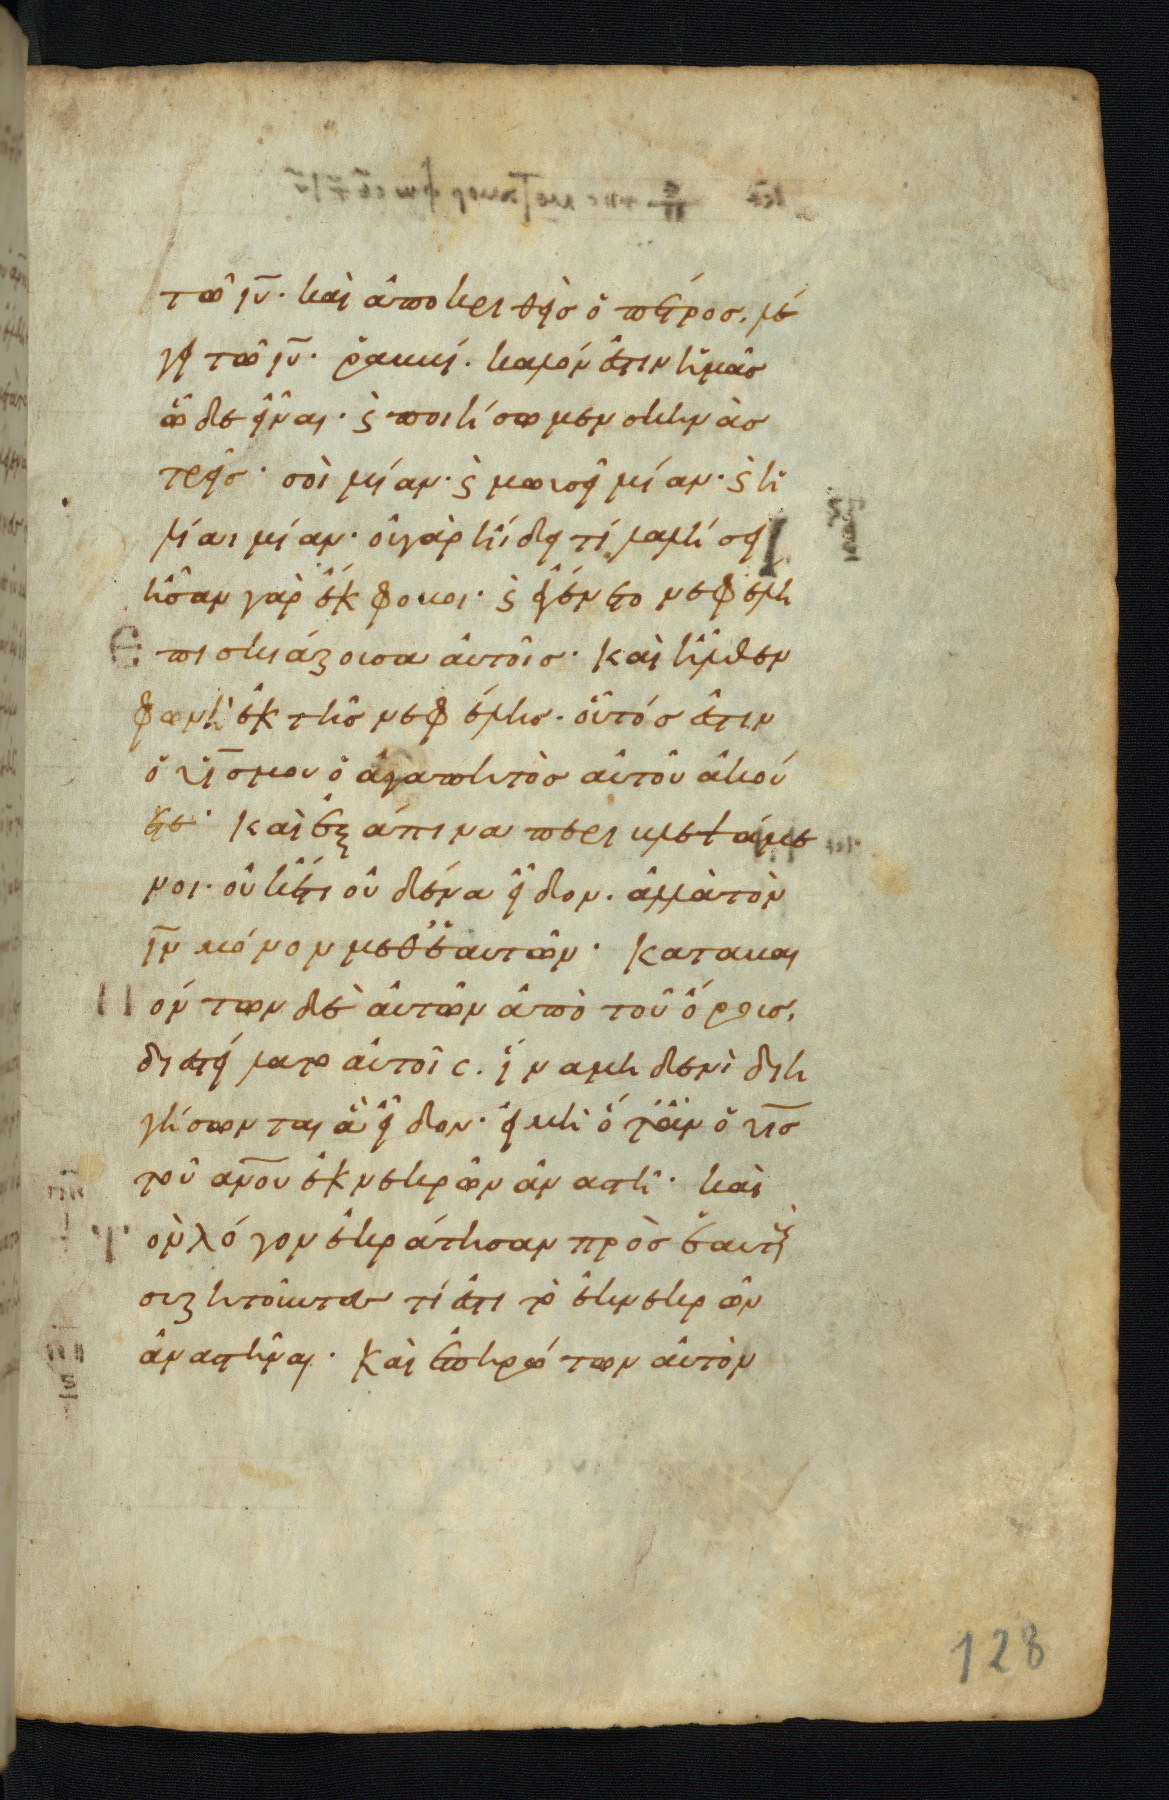 τῶ ιυ̅· καὶ ἀποκριθεὶσ ὁ πέτροσ. λέ
γει τῶ ιυ̅· ῥαββεί. καλόν ἐστιν ἡμᾶσ
ὧδε εἶναι· ϗ ποιήσωμεν σκηνὰσ
τρεῖσ· σοὶ μίαν· ϗ μωυσεῖ μίαν· ϗ ἠ
λίαι μίαν· οὐ γὰρ ἤδει τί λαλήσει
ἦσαν γὰρ ἔκφοβοι· ϗ ἐγένετο νεφέλη
ἐπισκιάζουσα αὐτοῖσ· Καὶ ἦλθεν
φωνὴ ἐκ τῆσ νεφέλησ. οὗτόσ ἐστιν
ὁ υι̅σ μου ὁ ἀγαπητὸσ αὐτοῦ ἀκού
ετε· Καὶ ἐξάπινα περιβλεψάμε
νοι. οὐκέτι οὐδένα εἶδον. ἀλλὰ τὸν
ιν̅ μόνον μεθ' ἑαυτῶν· Καταβαι
όντων δὲ αὐτῶν ἀπὸ τοῦ ὄρουσ.
διεστείλατο αὐτοῖς. ἵνα μηδενὶ διη
γήσωνται ἃ εἶδον· εἰ μὴ ὅταν ὁ υι̅σ
τοῦ αν̅ου ἐκ νεκρῶν ἀναστῆ· καὶ
τὸν λόγον ἐκράτησαν πρὸσ ἑαυτοὺσ
συζητοῦντεσ τί ἐστι τὸ ἐκ νεκρῶν
ἀναστῆναι· Καὶ ἐπηρώτων αὐτὸν
128